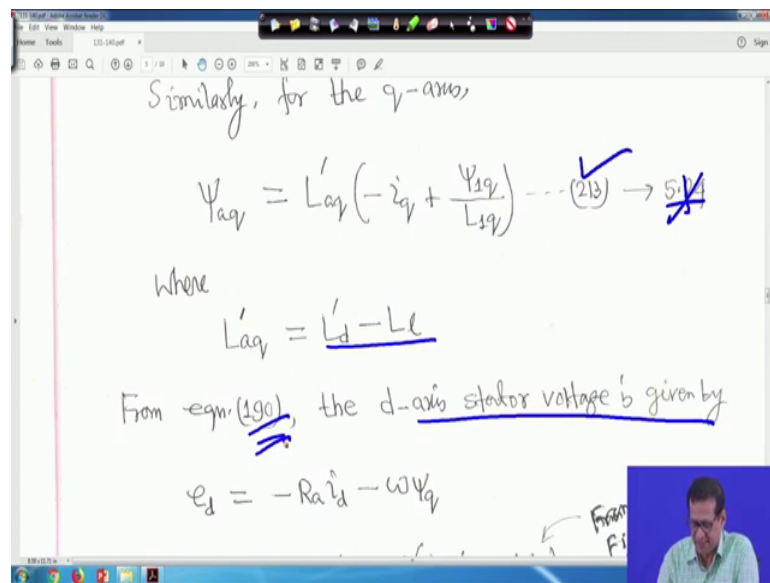 131-140.pdf - Adobe Acrobat Reader DC
File Edit View Window Help
Home Tools 131-140.pdf × Sign
5 / 10 200%
Similarly, for the q-axis,
Ψaq = L'aq (-iq + Ψ1q / L1q) ---- (213) → 5.
where
L'aq = L'd - Ll
From eqn. (190), the d-axis stator voltage is given by
ed = -Ra id - ωΨq
From
Fi
8.50 x 11.71 in